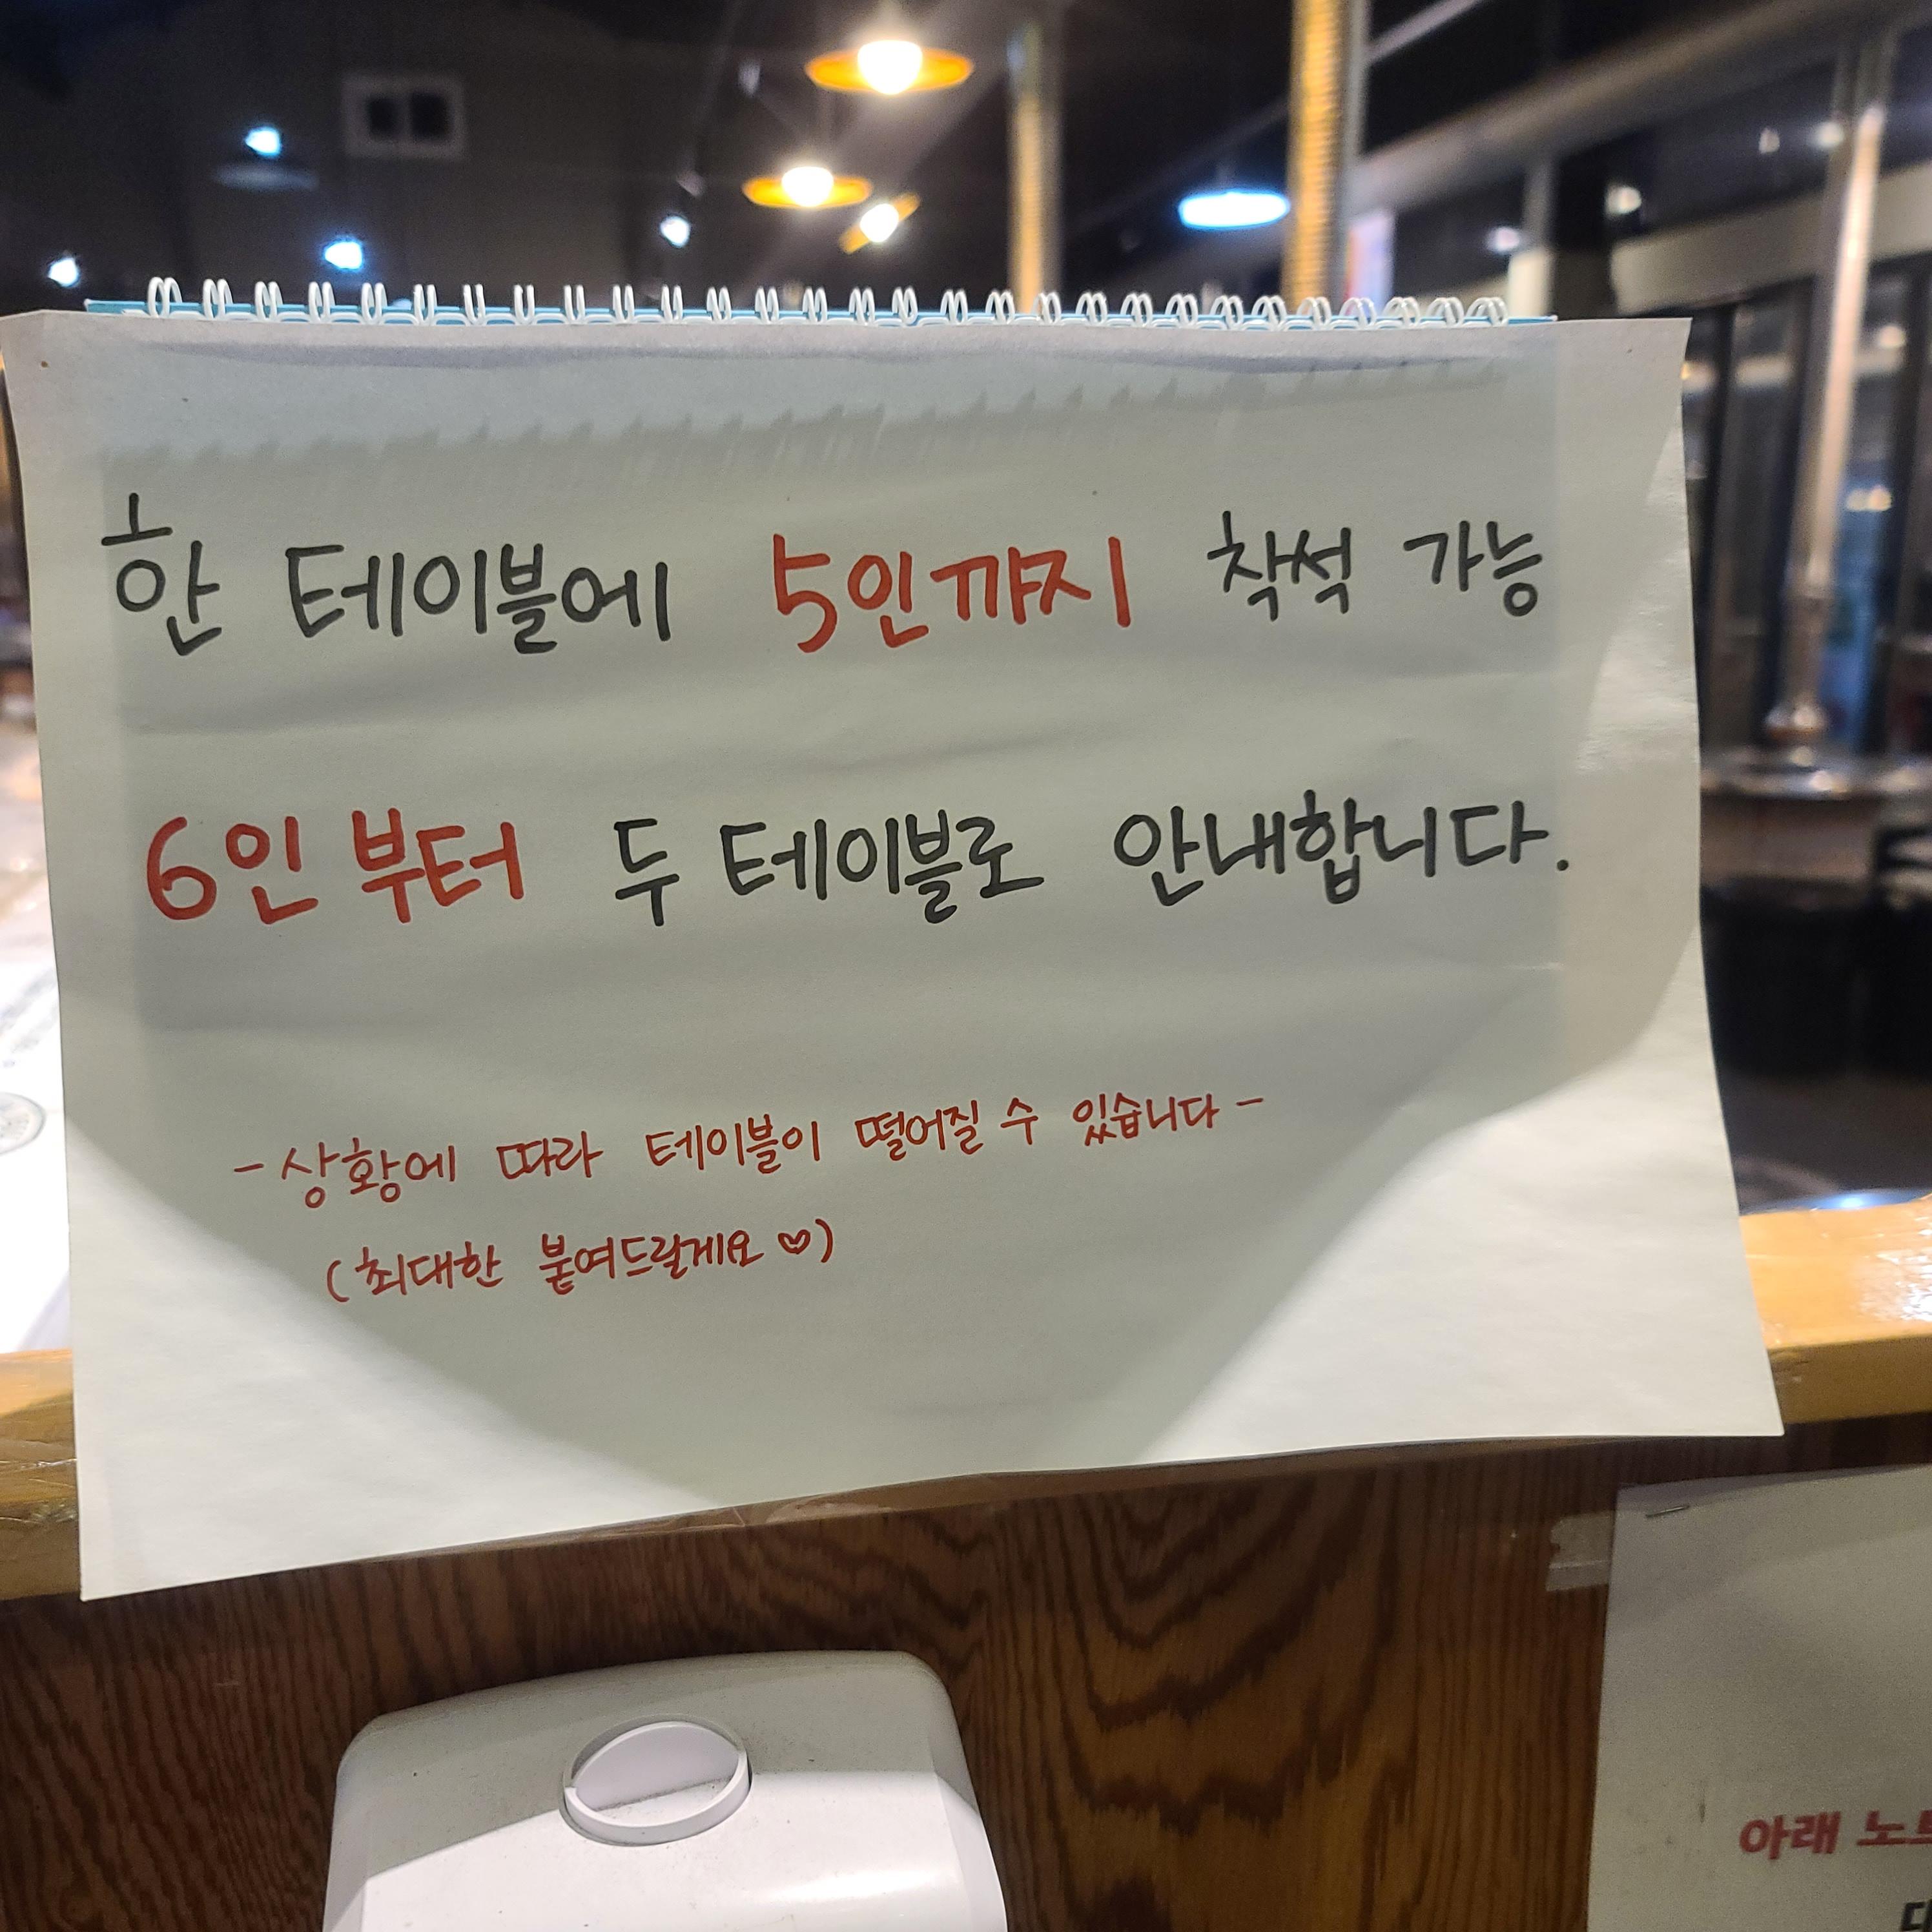 한 테이블에 5인까지 착석 가능
6인부터 두 테이블로 안내합니다.
- 상황에 따라 테이블이 떨어질 수 있습니다 -
(최대한 붙여드랄게요 ♡)
아래